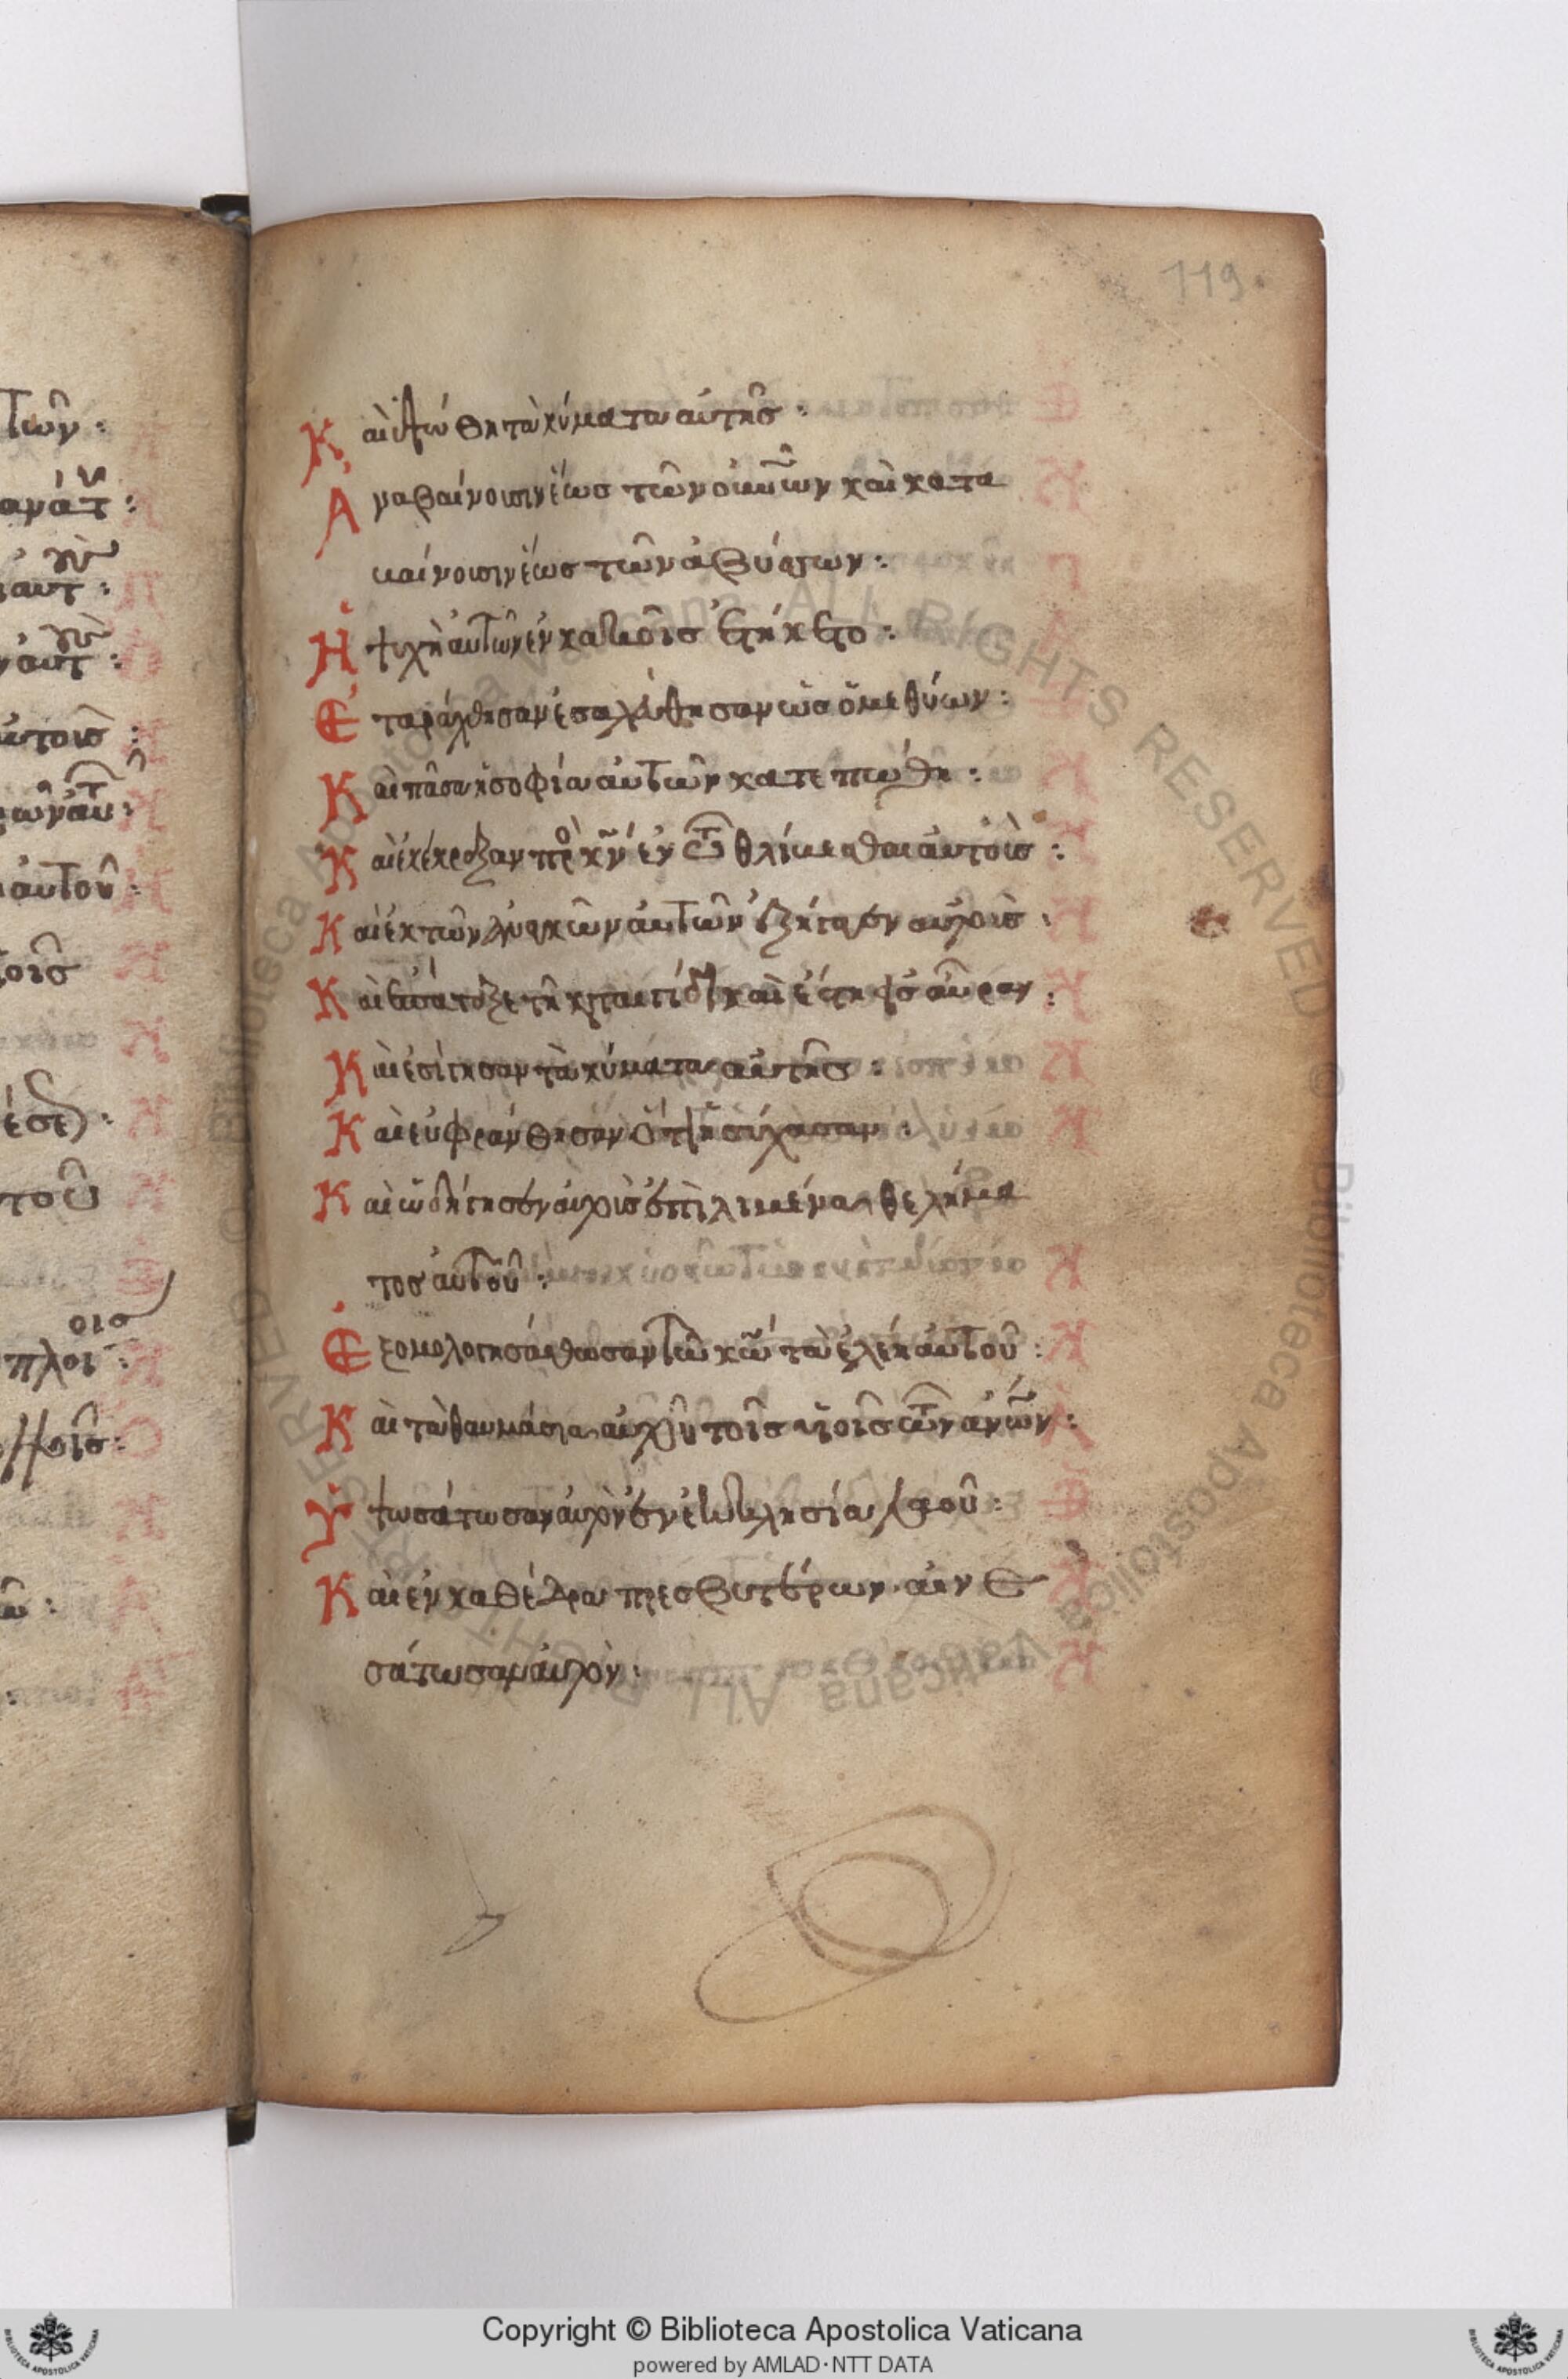 119
Καὶ ὑψώθη τὰ κύματα αὐτῆς :
Ἀναβαίνουσιν ἕως τῶν οὐνῶν καὶ κατα
βαίνουσιν ἕως τῶν ἀβύσσων :
Ἡ ψυχὴ αὐτῶν ἐν κακοῖς ἐτήκετο :
Ἐταράχθησαν ἐσαλεύθησαν ὡς ὁ μεθύων :
Καὶ πᾶσα ἡ σοφία αὐτῶν κατεπώθη :
Καὶ ἐκέκραξαν πρὸς κν ἐν τῶ θλίβεσθαι αὐτοὺς :
Καὶ ἐκ τῶν ἀναγκῶν αὐτῶν ἐξήγαγεν αὐτοὺς :
Καὶ ἐπέταξε τῆ καταιγίδι καὶ ἔστη εἰς αὔραν :
Καὶ ἐσίγησαν τὰ κύματα αὐτῆς :
Καὶ εὐφράνθησαν ὅτι ἡσύχασαν :
Καὶ ὡδήγησεν αὐτοὺς ἐπὶ λιμένα θελήμα
τος αὐτοῦ :
Ἐξομολογησάσθωσαν τῶ κω τὰ ἐλέη αὐτοῦ :
Καὶ τὰ θαυμάσια αὐτοῦ τοῖς υἱοῖς τῶν ανων :
Ὑψωσάτωσαν αὐτὸν ἐν ἐκκλησία λαοῦ :
Καὶ ἐν καθέδρα πρεσβυτέρων αἰνε
σάτωσαν αὐτὸν :
Copyright © Biblioteca Apostolica Vaticana
powered by AMLAD·NTT DATA